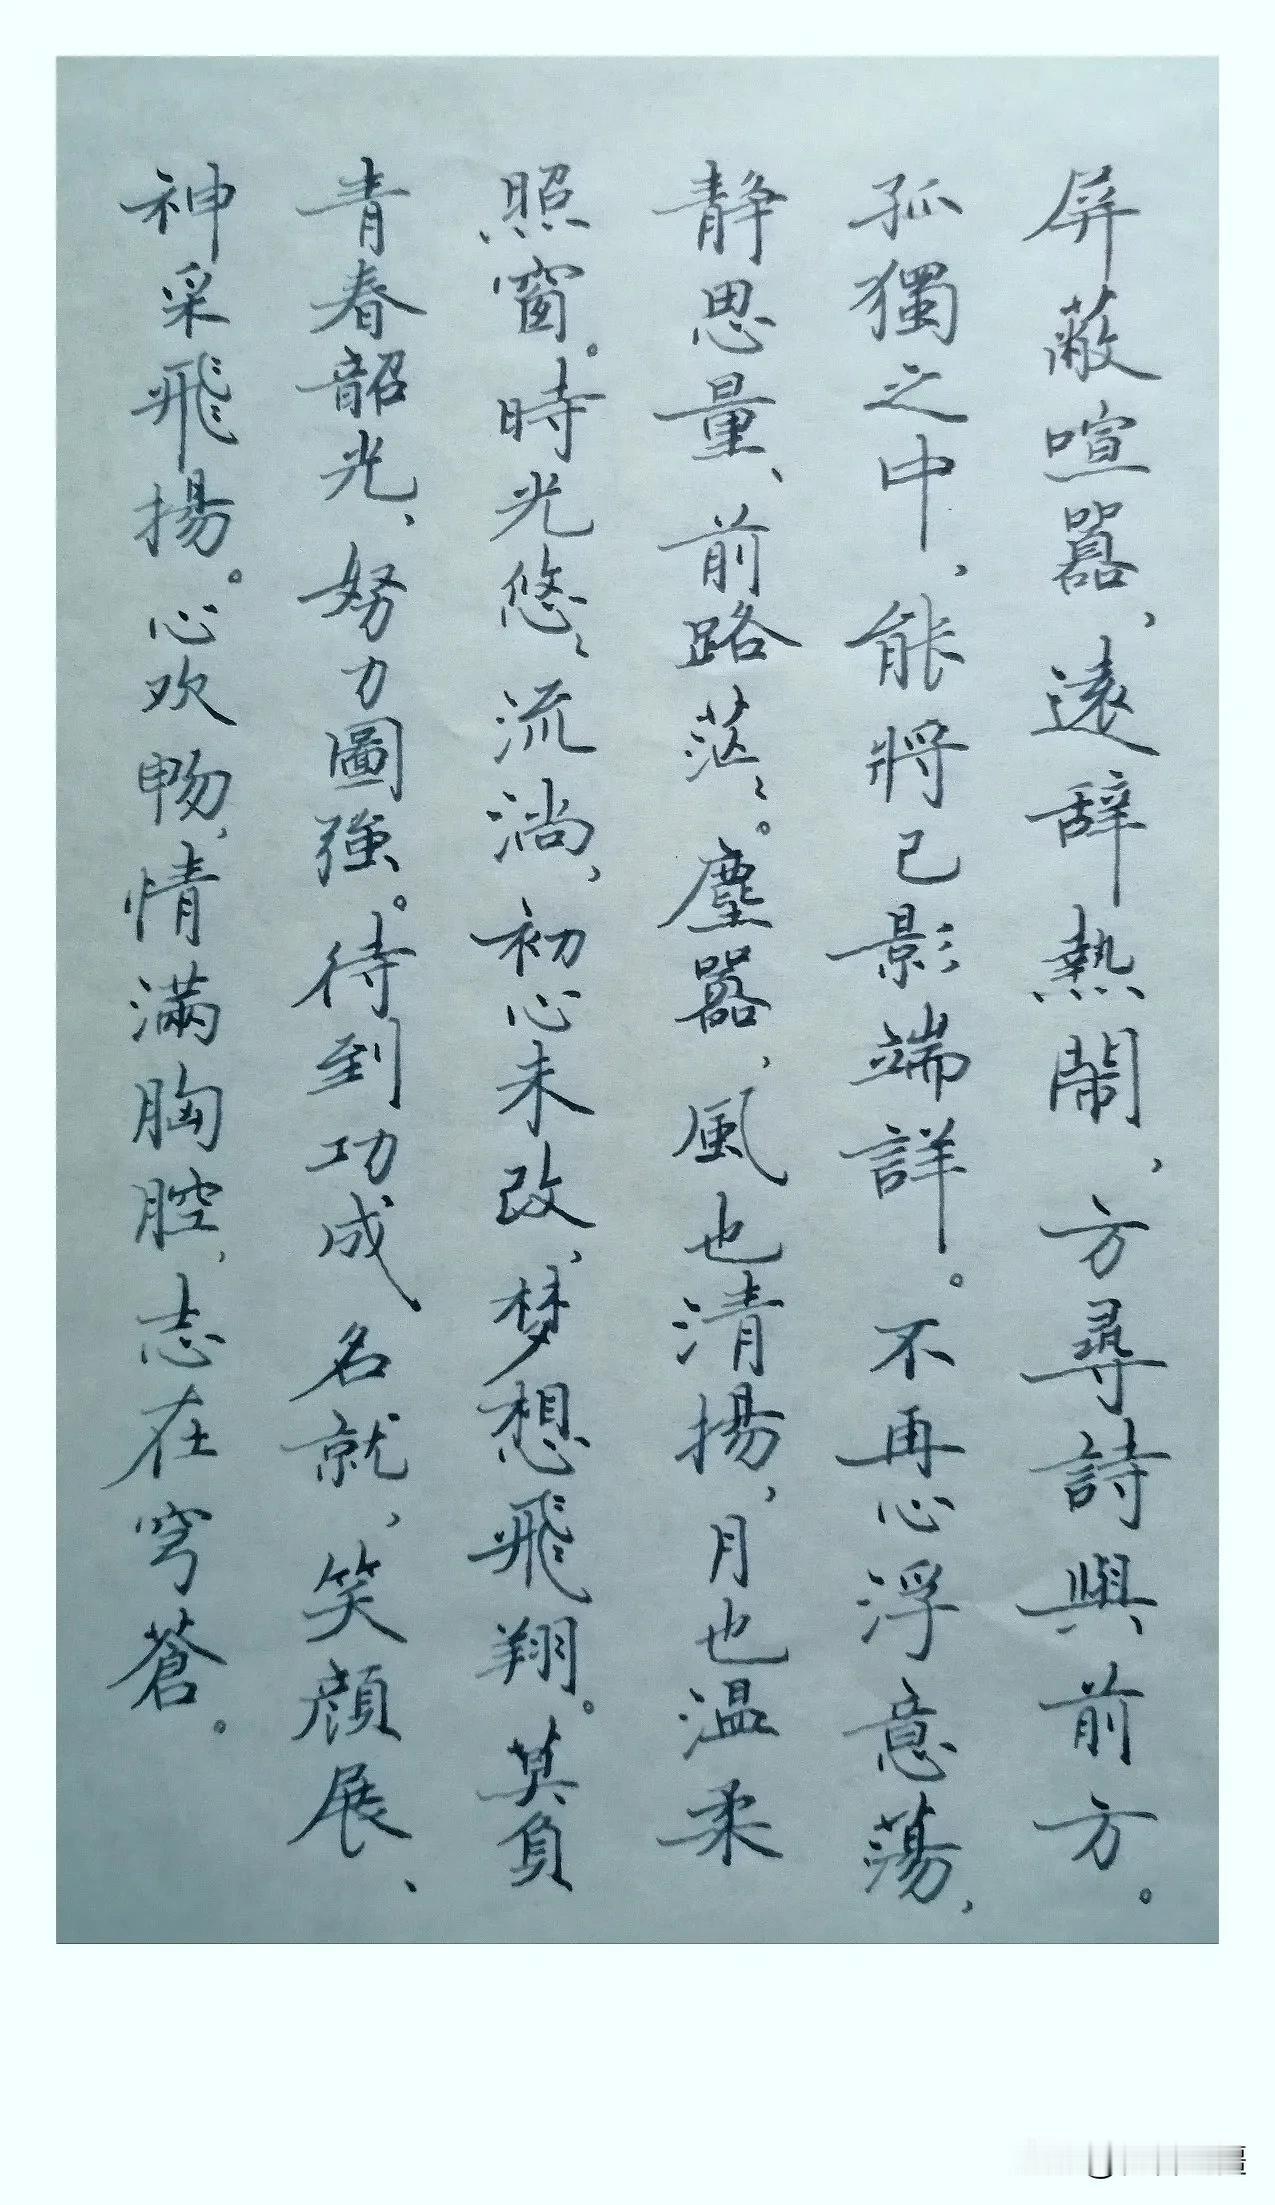 屏蔽喧囂，遠辭熱鬧，方尋詩與前方。
孤獨之中，能將己影端詳。不再心浮意蕩，
静思量、前路茫〻。塵囂，風也清揚，月也温柔
照窗。時光悠〻流淌，初心未改，梦想飛翔。莫負
青春韶光，努力圖強。待到功成名就，笑顔展、
神采飛揚。心欢畅，情滿胸腔，志在穹蒼。